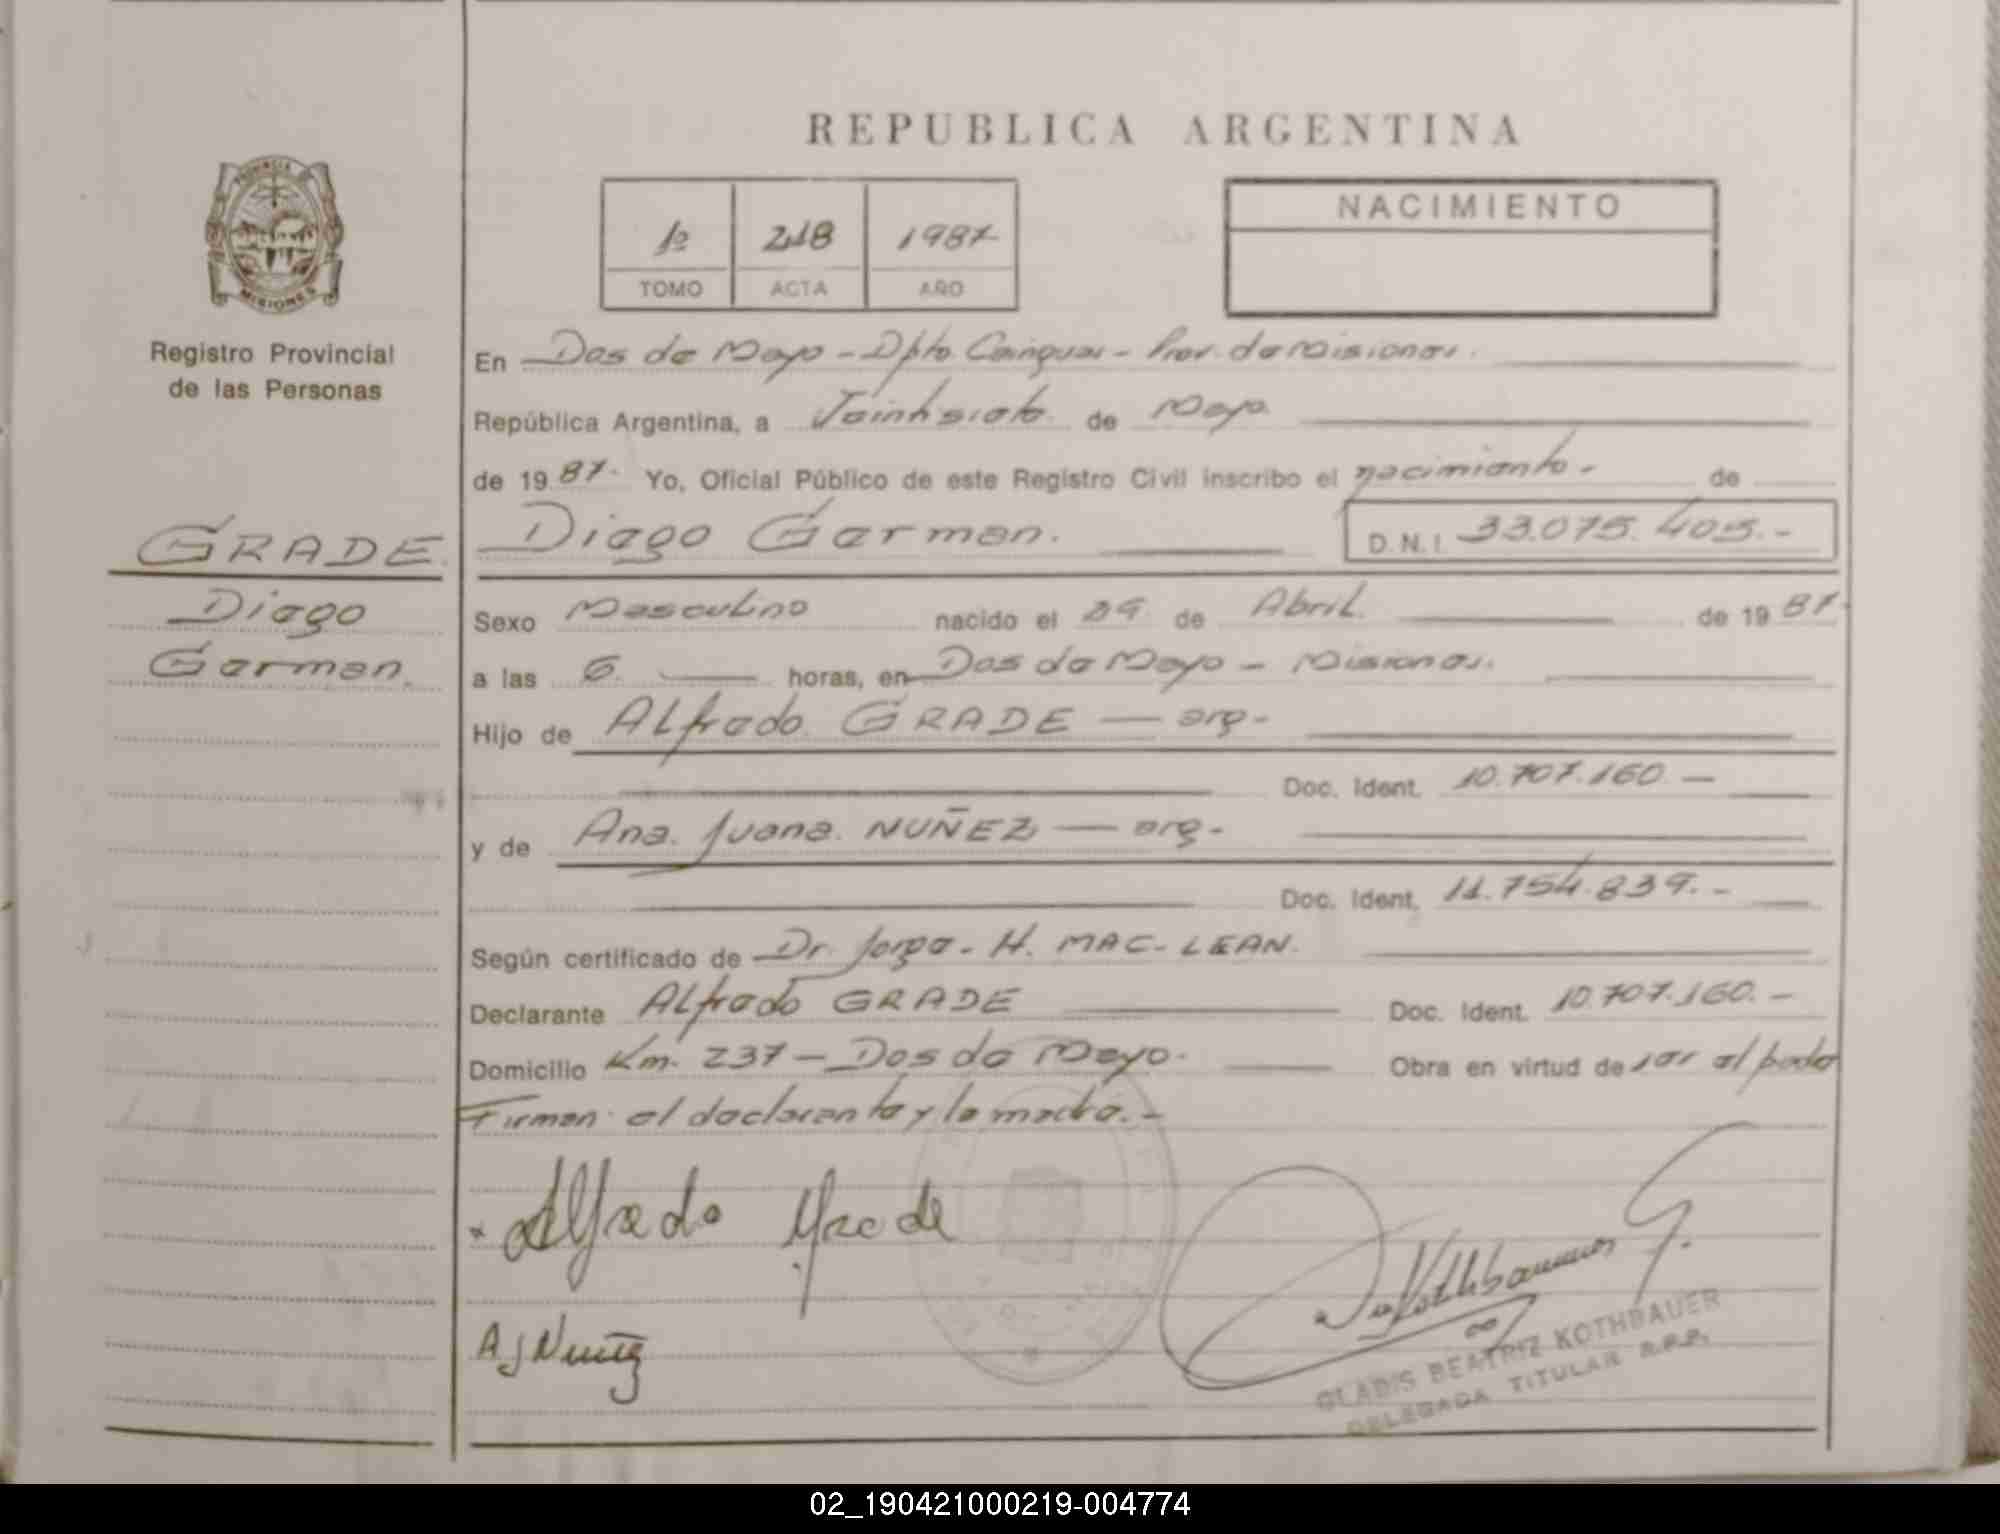 REPUBLICA ARGENTINA
PROVINCIA
MISIONES
Registro Provincial
de las Personas
1º 218 1987
TOMO ACTA AÑO
NACIMIENTO
En Dos de Mayo - Dpto. Cainguas - Prov. de Misiones.
República Argentina, a Veintisiete de Mayo
de 1987. Yo, Oficial Público de este Registro Civil inscribo el nacimiento - de
GRADE. Diego German. D.N.I. 33.075.405.-
Diego
German.
Sexo Masculino nacido el 29 de Abril de 1987.
a las 6. horas, en Dos de Mayo - Misiones.
Hijo de Alfredo GRADE — arg-
Doc. Ident. 10.707.160 —
y de Ana Juana NUÑEZ — arg-
Doc. Ident. 11.754.839.-
Según certificado de Dr. Jorge - H. MAC-LEAN.
Declarante Alfredo GRADE Doc. Ident. 10.707.160.-
Domicilio Km. 237 — Dos de Mayo. Obra en virtud de ser el padre
Firman: el declarante y la madre.-
x Alfredo Grade
A J Nuñez
Kothbauer G.
GLADIS BEATRIZ KOTHBAUER
DELEGADA TITULAR R.P.P.
02_190421000219-004774